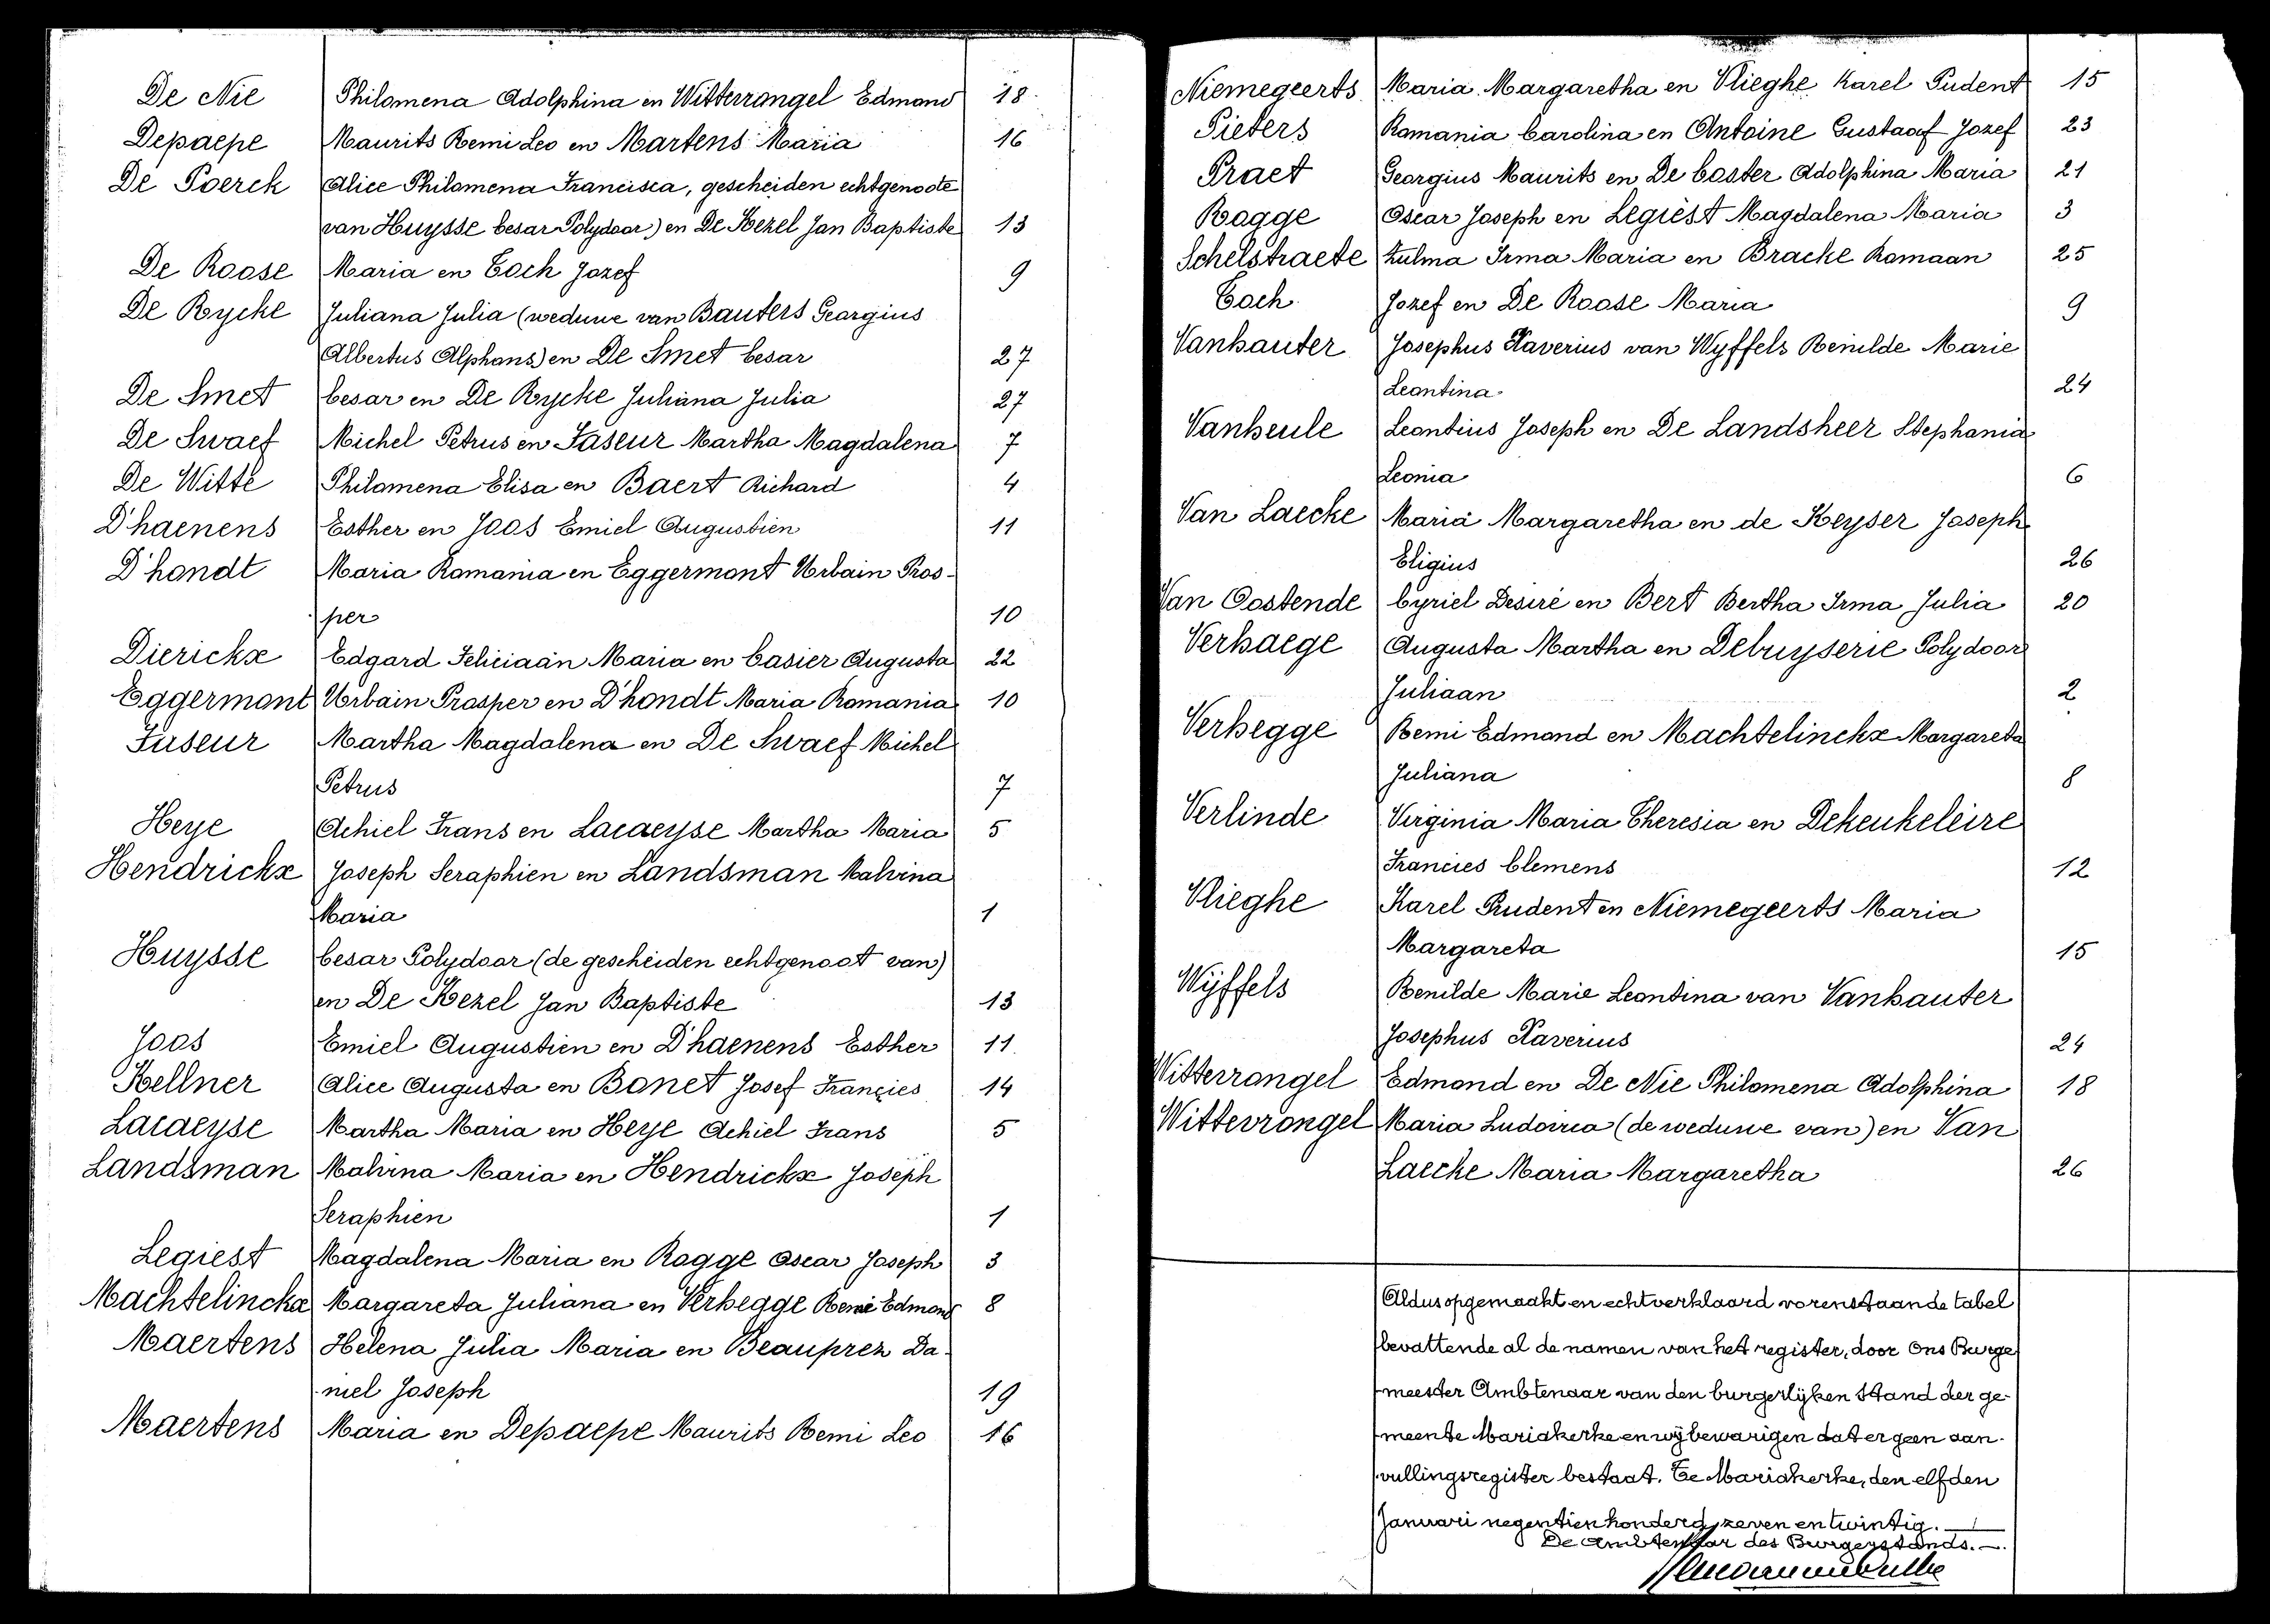 De Nie Philomena Adolphina en Witterrongel Edmond 18
Depaepe Maurits Remi Leo en Martens Maria 16
De Poerck Alice Philomena Francisca, gescheiden echtgenoote
van Huysse Cesar Polydoor) en De Kezel Jan Baptiste 13
De Roose Maria en Toch Jozef 9
De Rycke Juliana Julia (weduwe van Bauters Georgius
Albertus Alphons) en De Smet Cesar 27
De Smet Cesar en De Rycke Juliana Julia 27
De Swaef Michel Petrus en Faseur Martha Magdalena 7
De Witte Philomena Elisa en Baert Richard 4
D'haenens Esther en Joos Emiel Augustien 11
D'hondt Maria Romania en Eggermont Urbain Pros-
per 10
Dierickx Edgard Feliciaan Maria en Casier Augusta 22
Eggermont Urbain Prosper en D'hondt Maria Romania 10
Faseur Martha Magdalena en De Swaef Michel
Petrus 7
Heye Achiel Frans en Lacaeyse Martha Maria 5
Hendrickx Joseph Seraphien en Landsman Malvina
Maria 1
Huysse Cesar Polydoor (de gescheiden echtgenoot van)
en De Kezel Jan Baptiste 13
Joos Emiel Augustien en D'haenens Esther 11
Kellner Alice Augusta en Bonet Josef Françies 14
Lacaeyse Martha Maria en Heye Achiel Frans 5
Landsman Malvina Maria en Hendrickx Joseph
Seraphien 1
Legiest Magdalena Maria en Rogge Oscar Joseph 3
Machtelinckx Margareta Juliana en Verhegge Remi Edmond 8
Maertens Helena Julia Maria en Beauprez Da-
niel Joseph 19
Maertens Maria en Depaepe Maurits Remi Leo 16
Niemegeerts Maria Margaretha en Vlieghe Karel Pudent 15
Pieters Romania Carolina en Antoine Gustaaf Jozef 23
Praet Georgius Maurits en De Coster Adolphina Maria 21
Rogge Oscar Joseph en Legiest Magdalena Maria 3
Schelstraete Zulma Irma Maria en Bracke Romaan 25
Toch Jozef en De Roose Maria 9
Vanhauter Josephus Xaverius van Wyffels Renilde Marie
Leontina 24
Vanheule Leontius Joseph en De Landsheer Stephania
Leonia 6
Van Laecke Maria Margaretha en de Keyser Joseph
Eligius 26
Van Oostende Cyriel Desiré en Bert Bertha Irma Julia 20
Verhaege Augusta Martha en Debuyserie Polydoor
Juliaan 2
Verhegge Remi Edmond en Machtelinckx Margareta
Juliana 8
Verlinde Virginia Maria Theresia en Dekeukeleire
Francies Clemens 12
Vlieghe Karel Prudent en Niemegeerts Maria
Margareta 15
Wÿffels Renilde Marie Leontina van Vanhauter
Josephus Xaverius 24
Witterrongel Edmond en De Nie Philomena Adolphina 18
Wittevrongel Maria Ludovica (de weduwe van) en Van
Laecke Maria Margaretha 26
Aldus opgemaakt en echtverklaard vorenstaande tabel
bevattende al de namen van het register, door Ons Burge
meester Ambtenaar van den burgerlijken Stand der ge-
meente Mariakerke en wij bewarigen dat er geen aan-
vullingsregister bestaat. Te Mariakerke, den elfden
Januari negentienhonderd zeven en twintig.
De Ambtenaar des Burgerstands.